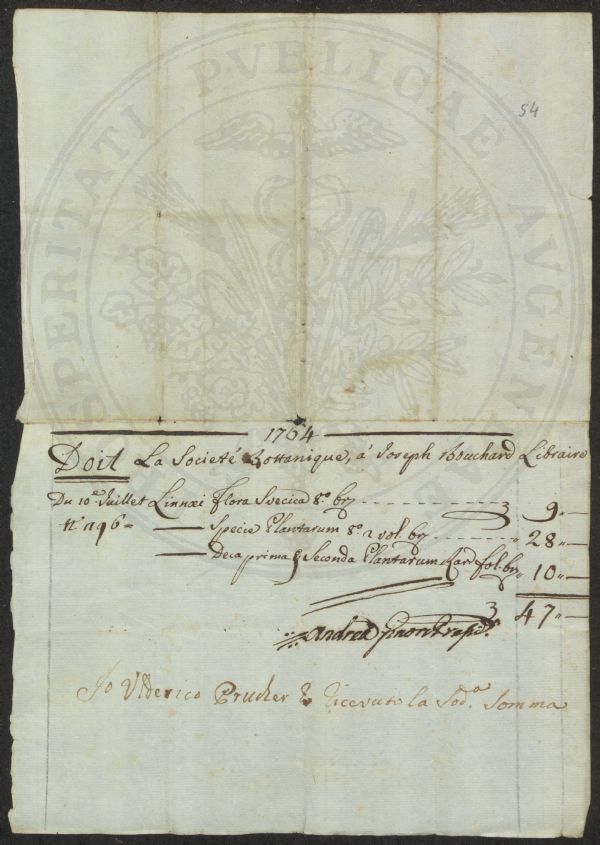 PROSPERITATI PVBLICAE AVGENDAE
54
1764
Doit La Societé Bottanique, á Joseph Bouchard Libraire
Du 10.e Juillet Linnæi flora Svecica 8.o br. 9
— Specie Plantarum 8.o 2 vol. br. 28
— Deca prima & Seconda Plantarum Rar fol. br. 10
47
Andrea Ginori
Jo Vlderico Prucker ho Ricevuto la Sod.a Somma